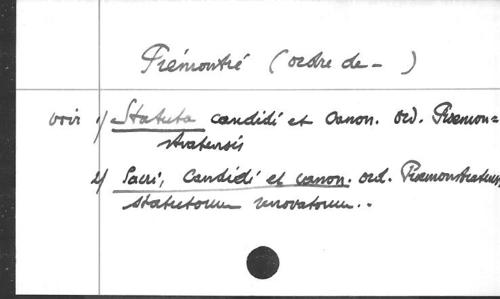 Prémontré (ordre de - )
voir 1/ Statuta candidi et canon. ord. Praemon=
stratensis
2/ Sacri, candidi et canon. ord. Praemonstratens.
statutorum renovatorum ..